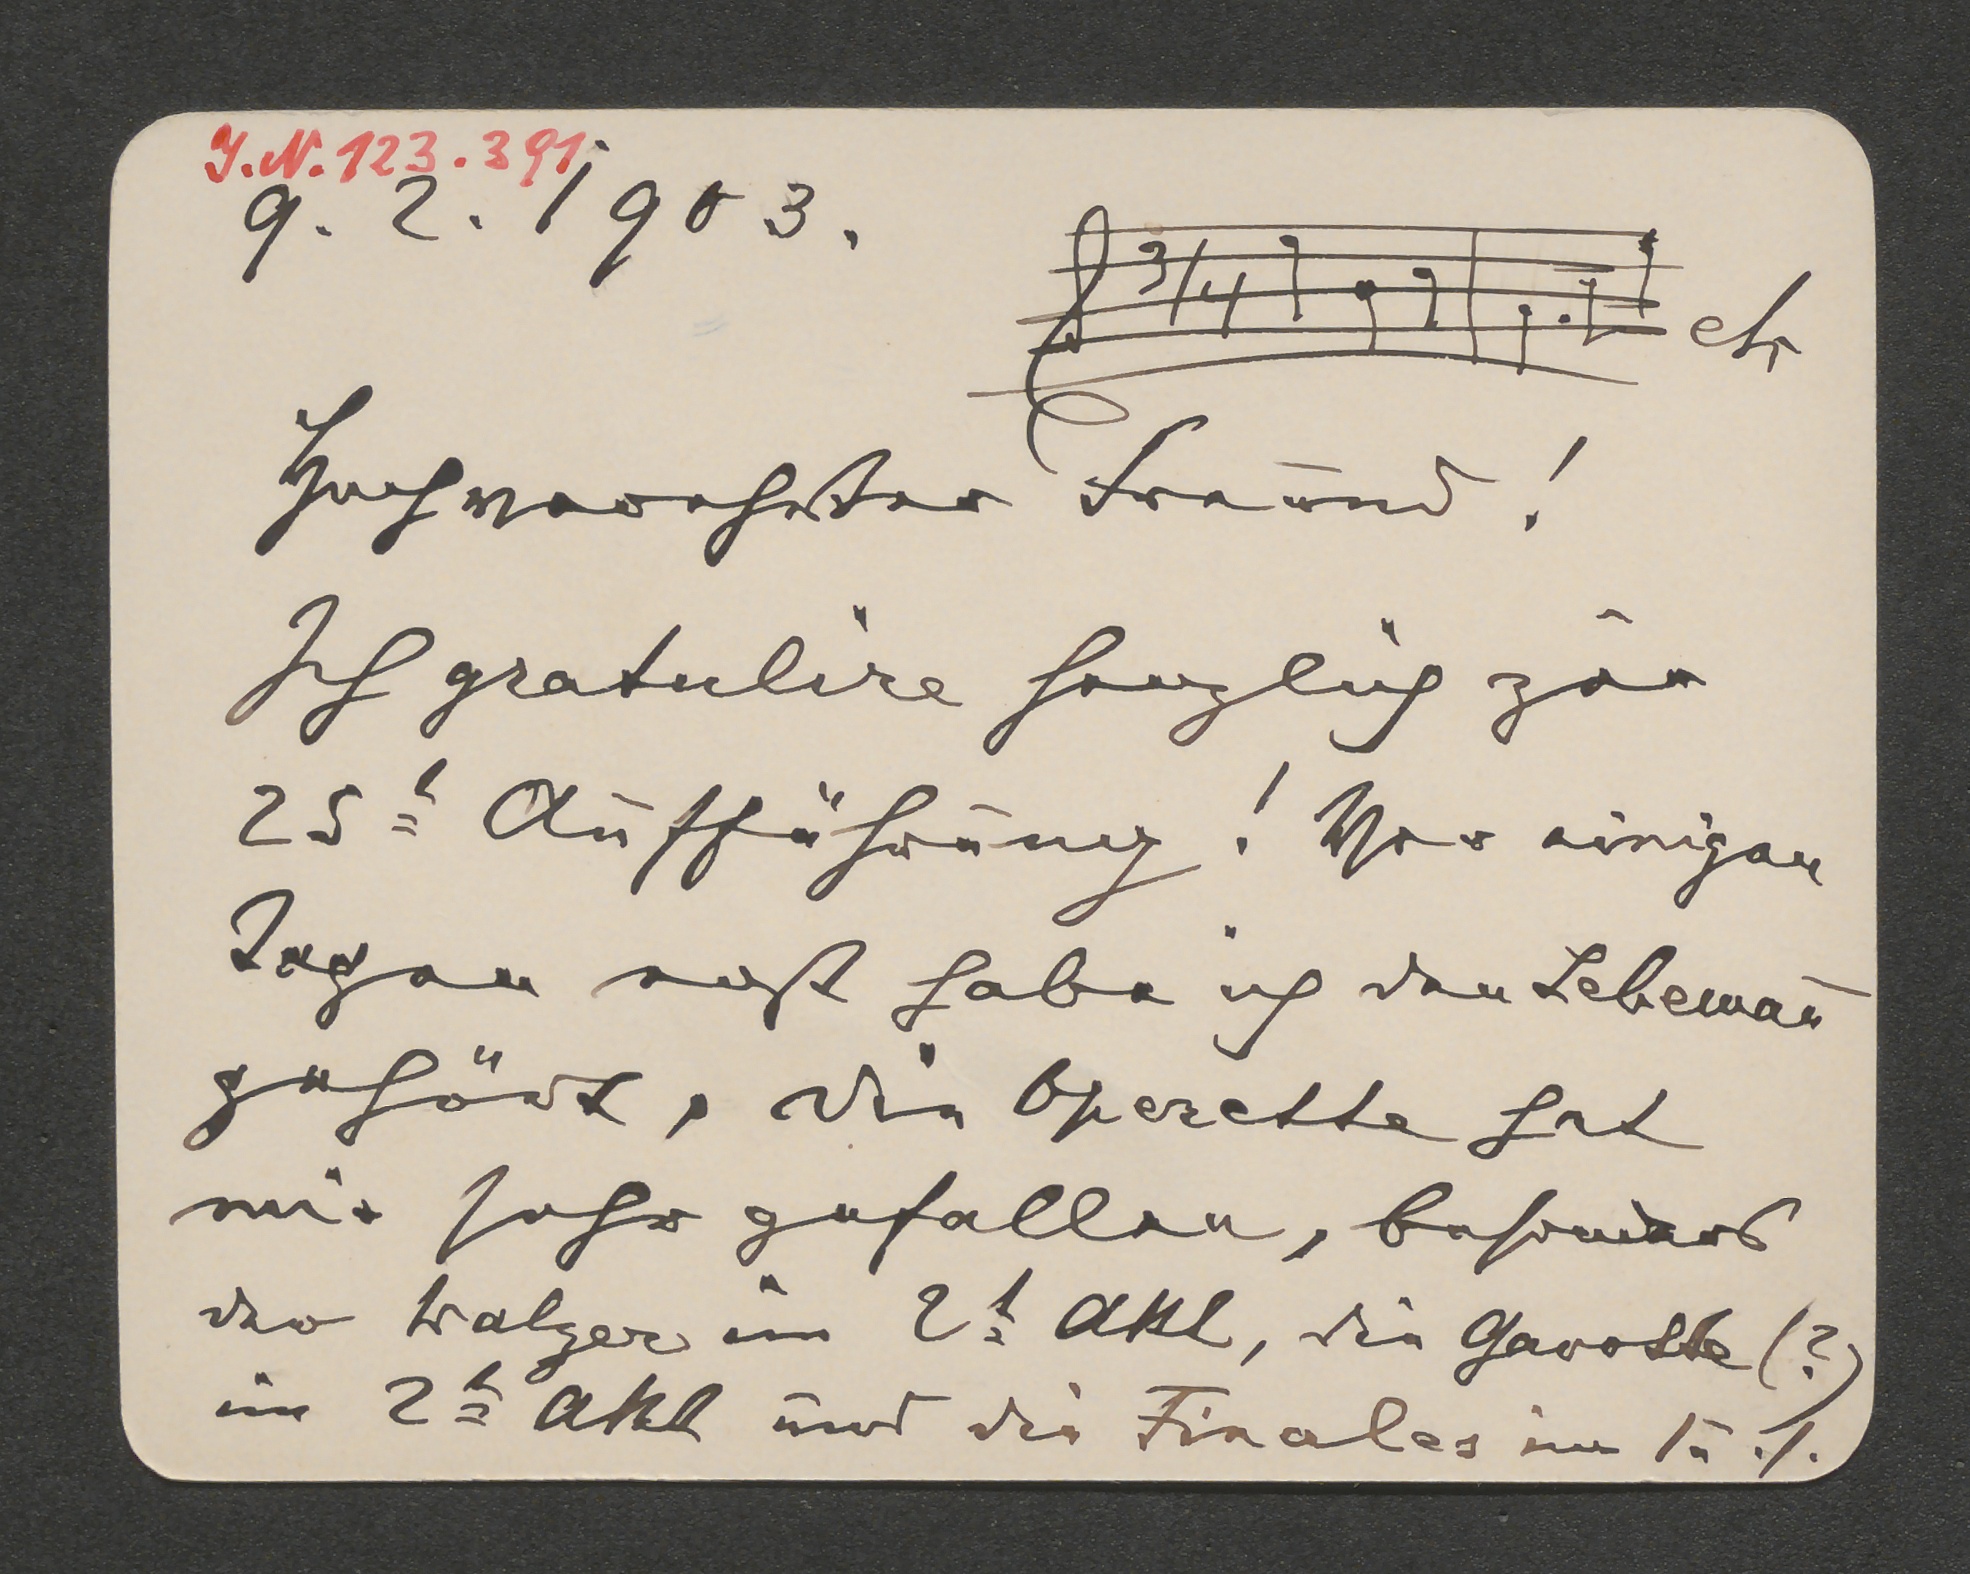 J.N. 123.391
9. 2. 1903.
3/4 etc
Hochverehrter Freund!
Ich gratulire herzlich zur
25t Aufführung! Vor einigen
Tagen erst habe ich den Lebemañ
gehört, die Operette hat
mir sehr gefallen, besonders
der Walzer im 2t Akt, die Gavotte (?)
im 2t Akt und die Finales im 1 u ./.